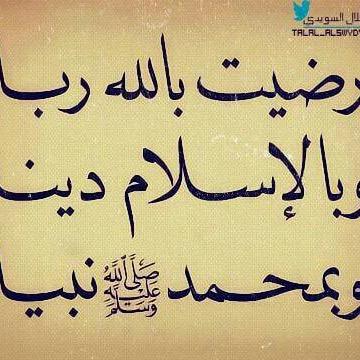 طلال السويدي
TALAL_ALSWYDY
رضيت بالله ربا
وبالإسلام دينا
وبمحمد ﷺ نبيا